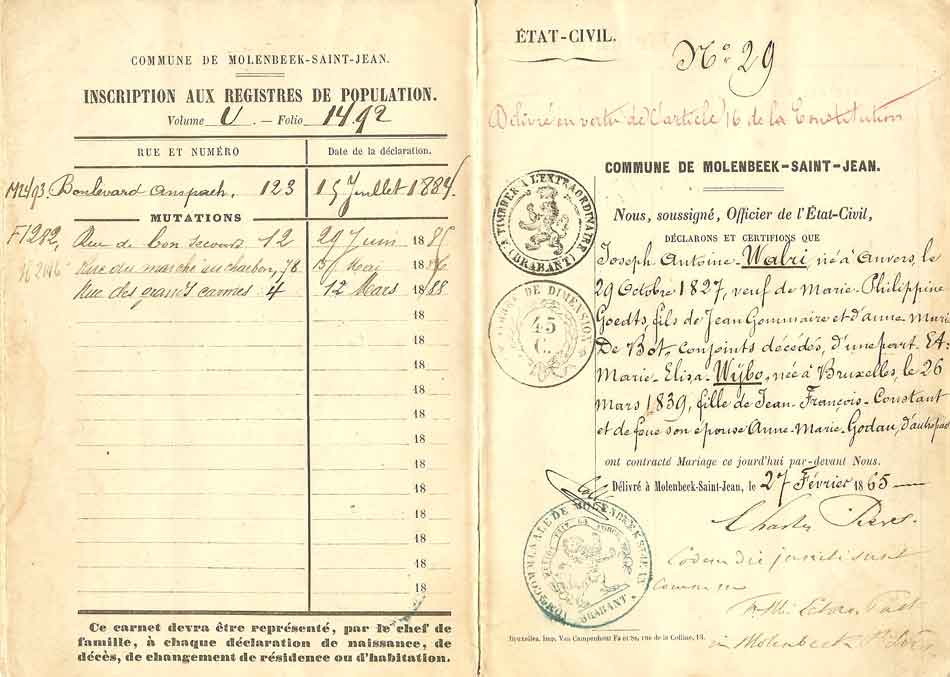 COMMUNE DE MOLENBEEK-SAINT-JEAN.
INSCRIPTION AUX REGISTRES DE POPULATION.
Volume U. — Folio 1492
RUE ET NUMÉRO
Date de la déclaration.
M2493. Boulevard Anspach. 123 15 Juillet 1884.
MUTATIONS
F1282, Rue de bon secours 12 29 Juin 1885
Rue du marché au charbon, 78 5 Mai 1886
Rue des grands carmes 4 12 Mars 1888
18
18
18
18
18
18
18
18
18
18
18
Ce carnet devra être représenté, par le chef de
famille, à chaque déclaration de naissance, de
décès, de changement de résidence ou d'habitation.
ÉTAT-CIVIL.
No 29
Délivré en vertu de l'article 16 de la Constitution
COMMUNE DE MOLENBEEK-SAINT-JEAN.
Nous, soussigné, Officier de l'État-Civil,
DÉCLARONS ET CERTIFIONS QUE
Joseph Antoine Walri, né à Anvers, le
29 Octobre 1827, veuf de Marie-Philippine
Goedts, fils de Jean Gommaire et d'Anne Marie
De Bot, conjoints décédés, d'une part. Et-
Marie-Elisa Wijbo, née à Bruxelles, le 26
Mars 1839, fille de Jean-François-Constant
et de feue son epouse Anne-Marie-Godau, d'autre part
ont contracté Mariage ce jourd'hui par-devant Nous.
Délivré à Molenbeek-Saint-Jean, le 27 Février 1865
TIMBRE A L'EXTRAORDINAIRE
(BRABANT)
TIMBRE DE DIMENSION
45
C.
MAISON COMMUNALE DE MOLENBEEK ST JEAN
BRABANT
Charles
in Molenbeek St
Bruxelles, Imp. Van Campenhout Fs et Sr, rue de la Colline, 13.